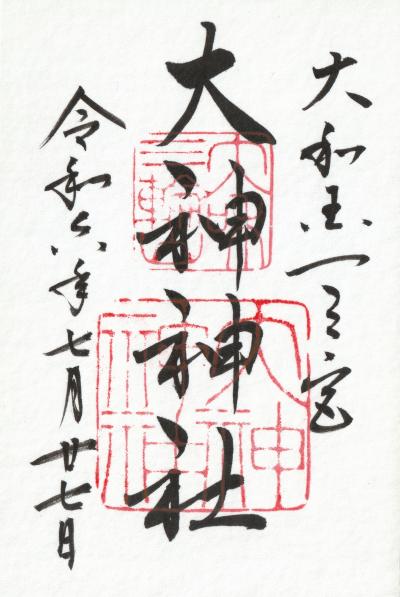 大和国一之宮
大神神社
令和六年七月廿七日
三輪
大神
大神
神社